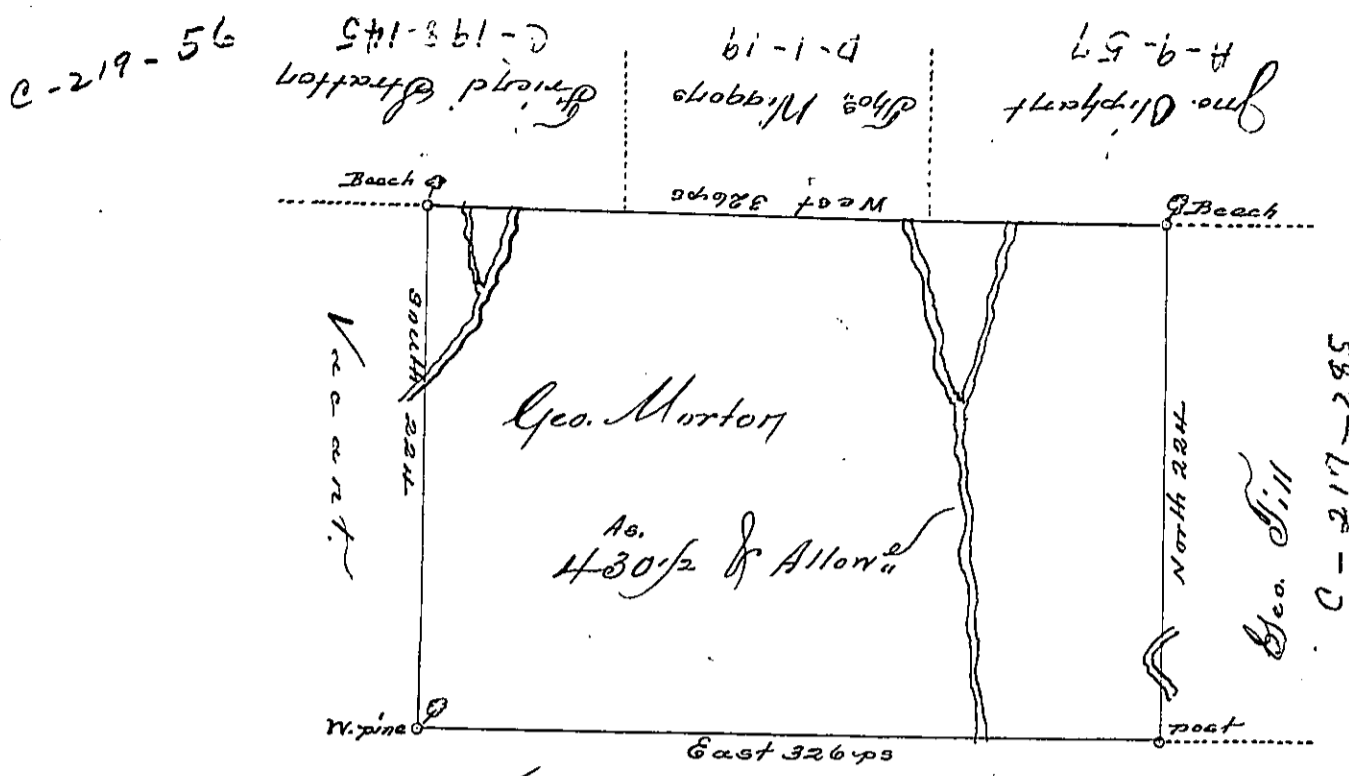 C-219-56
C-198-145
Friend Stratton
D-1-19
Thos. Wiggons
A-9-57
Jno. Oliphant
Beach
West 326 ps
Beach
South 224
Vacant.
Geo. Morton
As.
430 1/2 & Allowe
North 224
Geo. Till
C-217-285
W. pine
East 326 ps
post